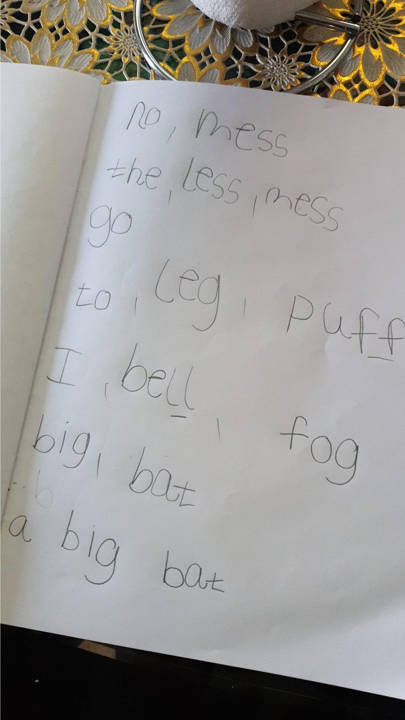 no, mess
the, less, mess
go
to, leg, puff
I, bell, fog
big, bat
a big bat